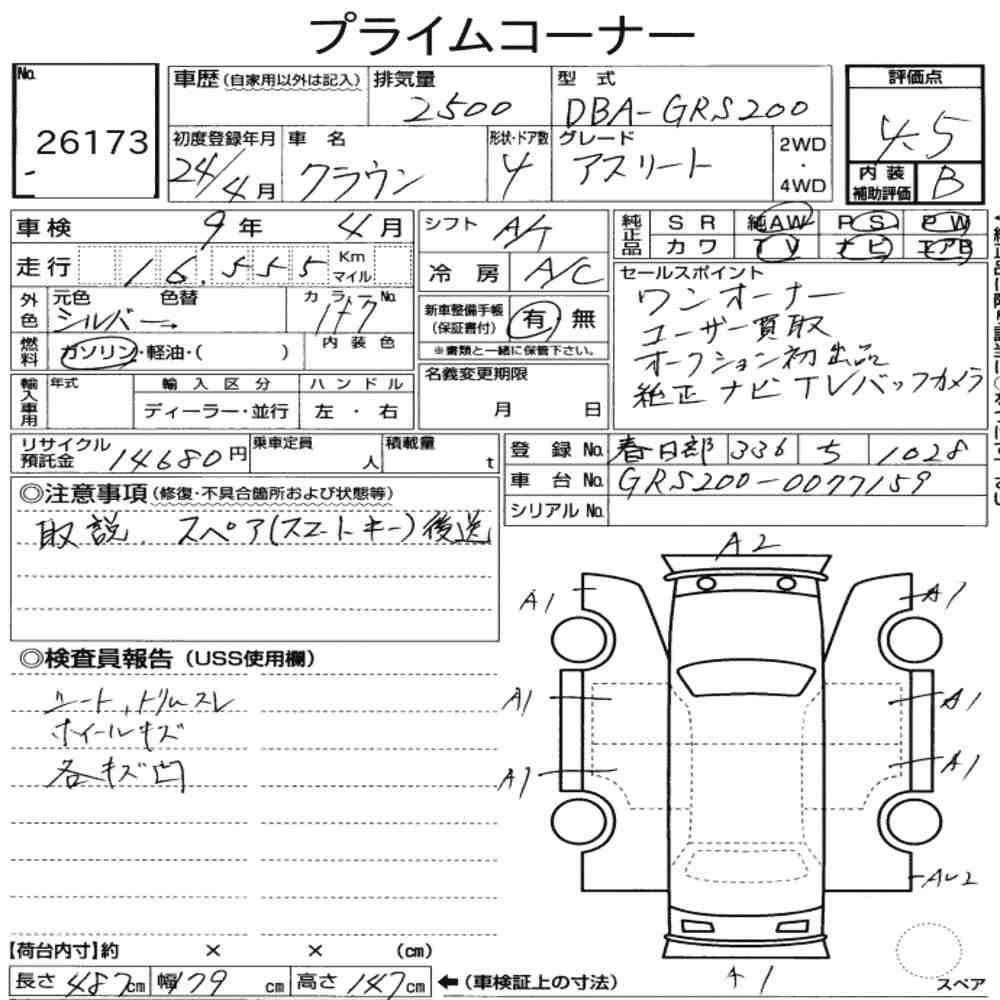 プライムコーナー
No. 26173
車歴(自家用以外は記入) 排気量 2500 型式 DBA-GRS200
初度登録年月 24/4月 車名 クラウン 形状・ドア数 4 グレード アスリート 2WD・4WD
評価点 4.5
内装補助評価 B
車検 9年 4月 シフト A/T
走行 16,555 Km マイル 冷房 A/C
純正品 SR 純AW PS PW
カワ TV ナビ エアB
外色 元色 シルバー 色替 カラーNo. 1F7
燃料 ガソリン・軽油・( ) 内装色
新車整備手帳(保証書付) 有 無
※書類と一緒に保管下さい。
輸入車用 年式 輸入区分 ディーラー・並行 ハンドル 左・右
名義変更期限 月 日
セールスポイント
ワンオーナー
ユーザー買取
オークション初出品
純正ナビTVバックカメラ
リサイクル預託金 14680円 乗車定員 人 積載量 t
登録No. 春日部 336 ち 1028
車台No. GRS200-0077159
シリアルNo.
◎注意事項(修復・不具合箇所および状態等)
取説、スペア(スマートキー)後送
◎検査員報告(USS使用欄)
シート、トリムスレ
ホイールキズ
各キズ凹
A2
A1 A1
A1 A1
A1 A1
AU2
A1
スペア
【荷台内寸】約 × × (cm)
長さ 487cm 幅 179cm 高さ 147cm ←(車検証上の寸法)